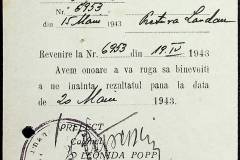 Nr. 6953
din 15 Maiu 1943
Revenire la Nr. 6953 din 19.IV 1943
Avem onoare a va ruga sa binevoiti
a ne inainta rezultatul pana la data
de 20 Maiu 1943.
PREFECT
Colonel
LEONIDA POPP